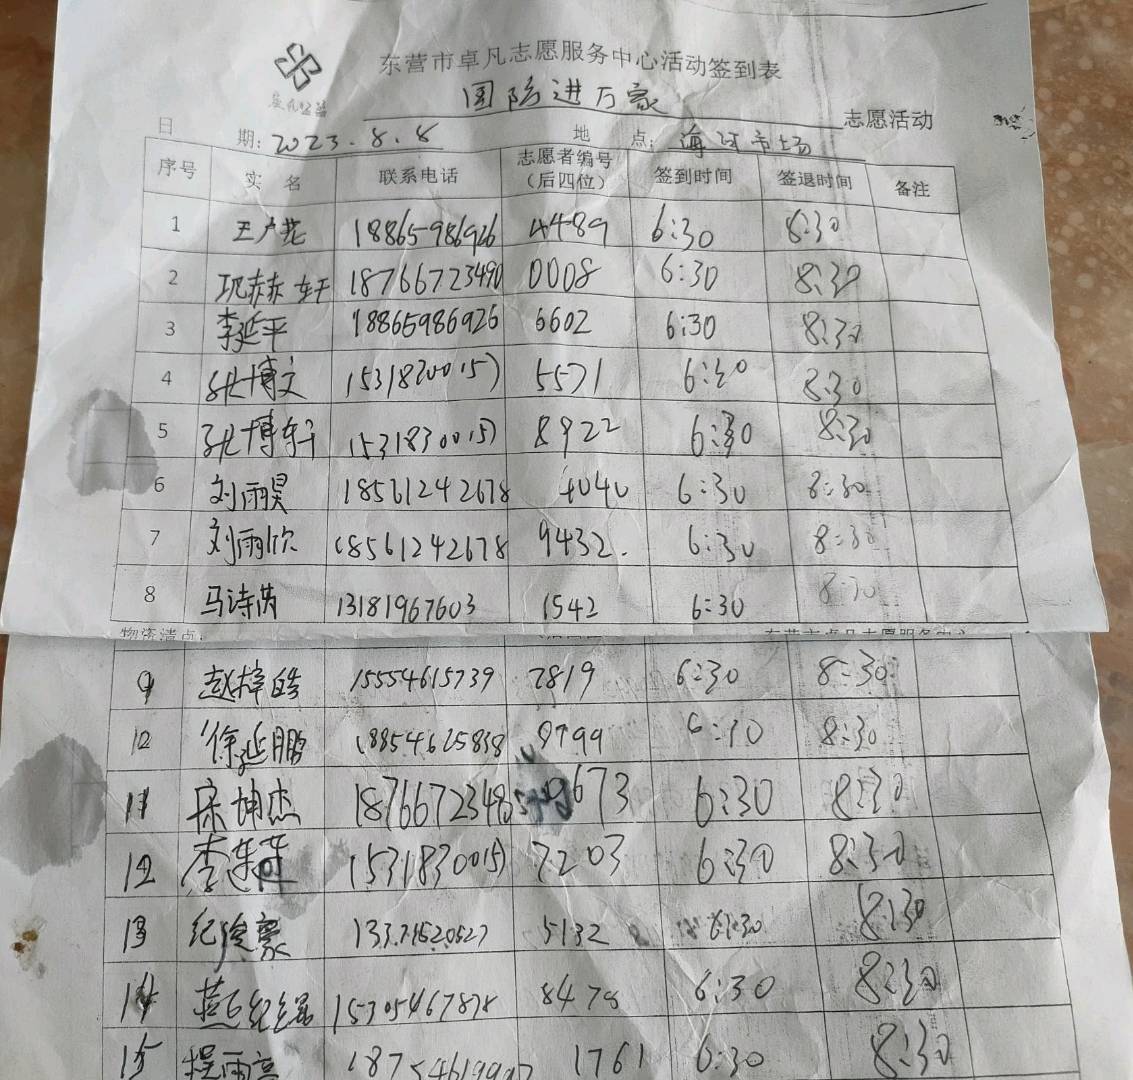 东营市卓凡志愿服务中心活动签到表
国防进万家 志愿活动
日 期: 2023.8.8 地 点: 海河市场
序号 实 名 联系电话 志愿者编号（后四位） 签到时间 签退时间 备注
1 18865986926 4489 6:30 8:30
2 18766723490 0008 6:30 8:30
3 李延平 18865986926 6602 6:30 8:30
4 张博文 5571 6:30 8:30
5 张博轩 8922 6:30 8:30
6 刘雨昊 18561242678 4040 6:30 8:30
7 刘雨欣 18561242678 9432. 6:30 8:30
8 马诗涵 13181967603 1542 6:30 8:30
物资清点:
9 赵梓皓 15554615739 7819 6:30 8:30
10 徐延鹏 9799 8:30
11 宋坤杰 9673 6:30 8:30
12 7203 6:30 8:30
13 5132 6:30 8:30
14 15305467878 8478 6:30 8:30
15 1761 6:30 8:30